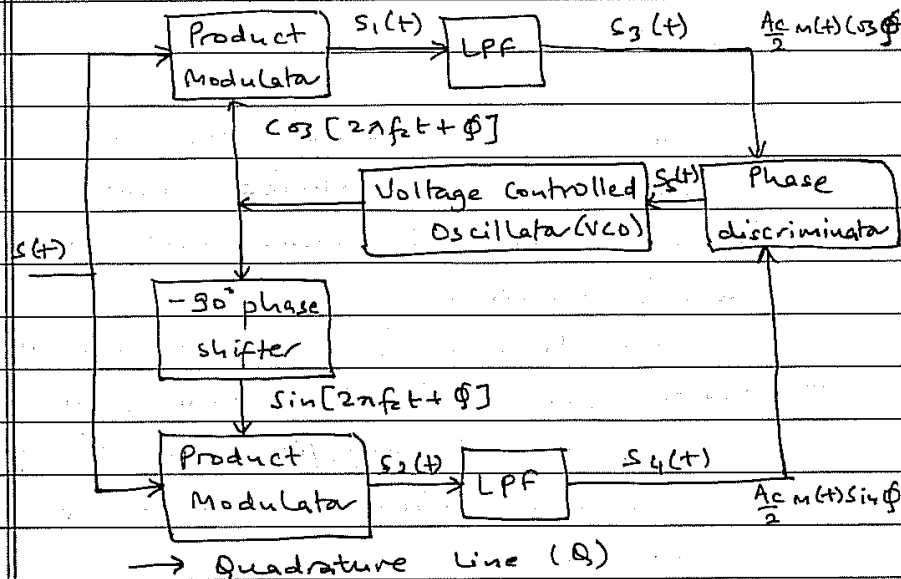 Product Modulator
S₁(t)
LPF
S₃(t)
Ac/2 m(t) Cos ϕ
Cos [2πfct + ϕ]
Voltage Controlled Oscillator (VCO)
S₅(t)
Phase discriminator
s(t)
-90° phase shifter
Sin [2πfct + ϕ]
Product Modulator
S₂(t)
LPF
S₄(t)
Ac/2 m(t) Sin ϕ
→ Quadrature Line (Q)